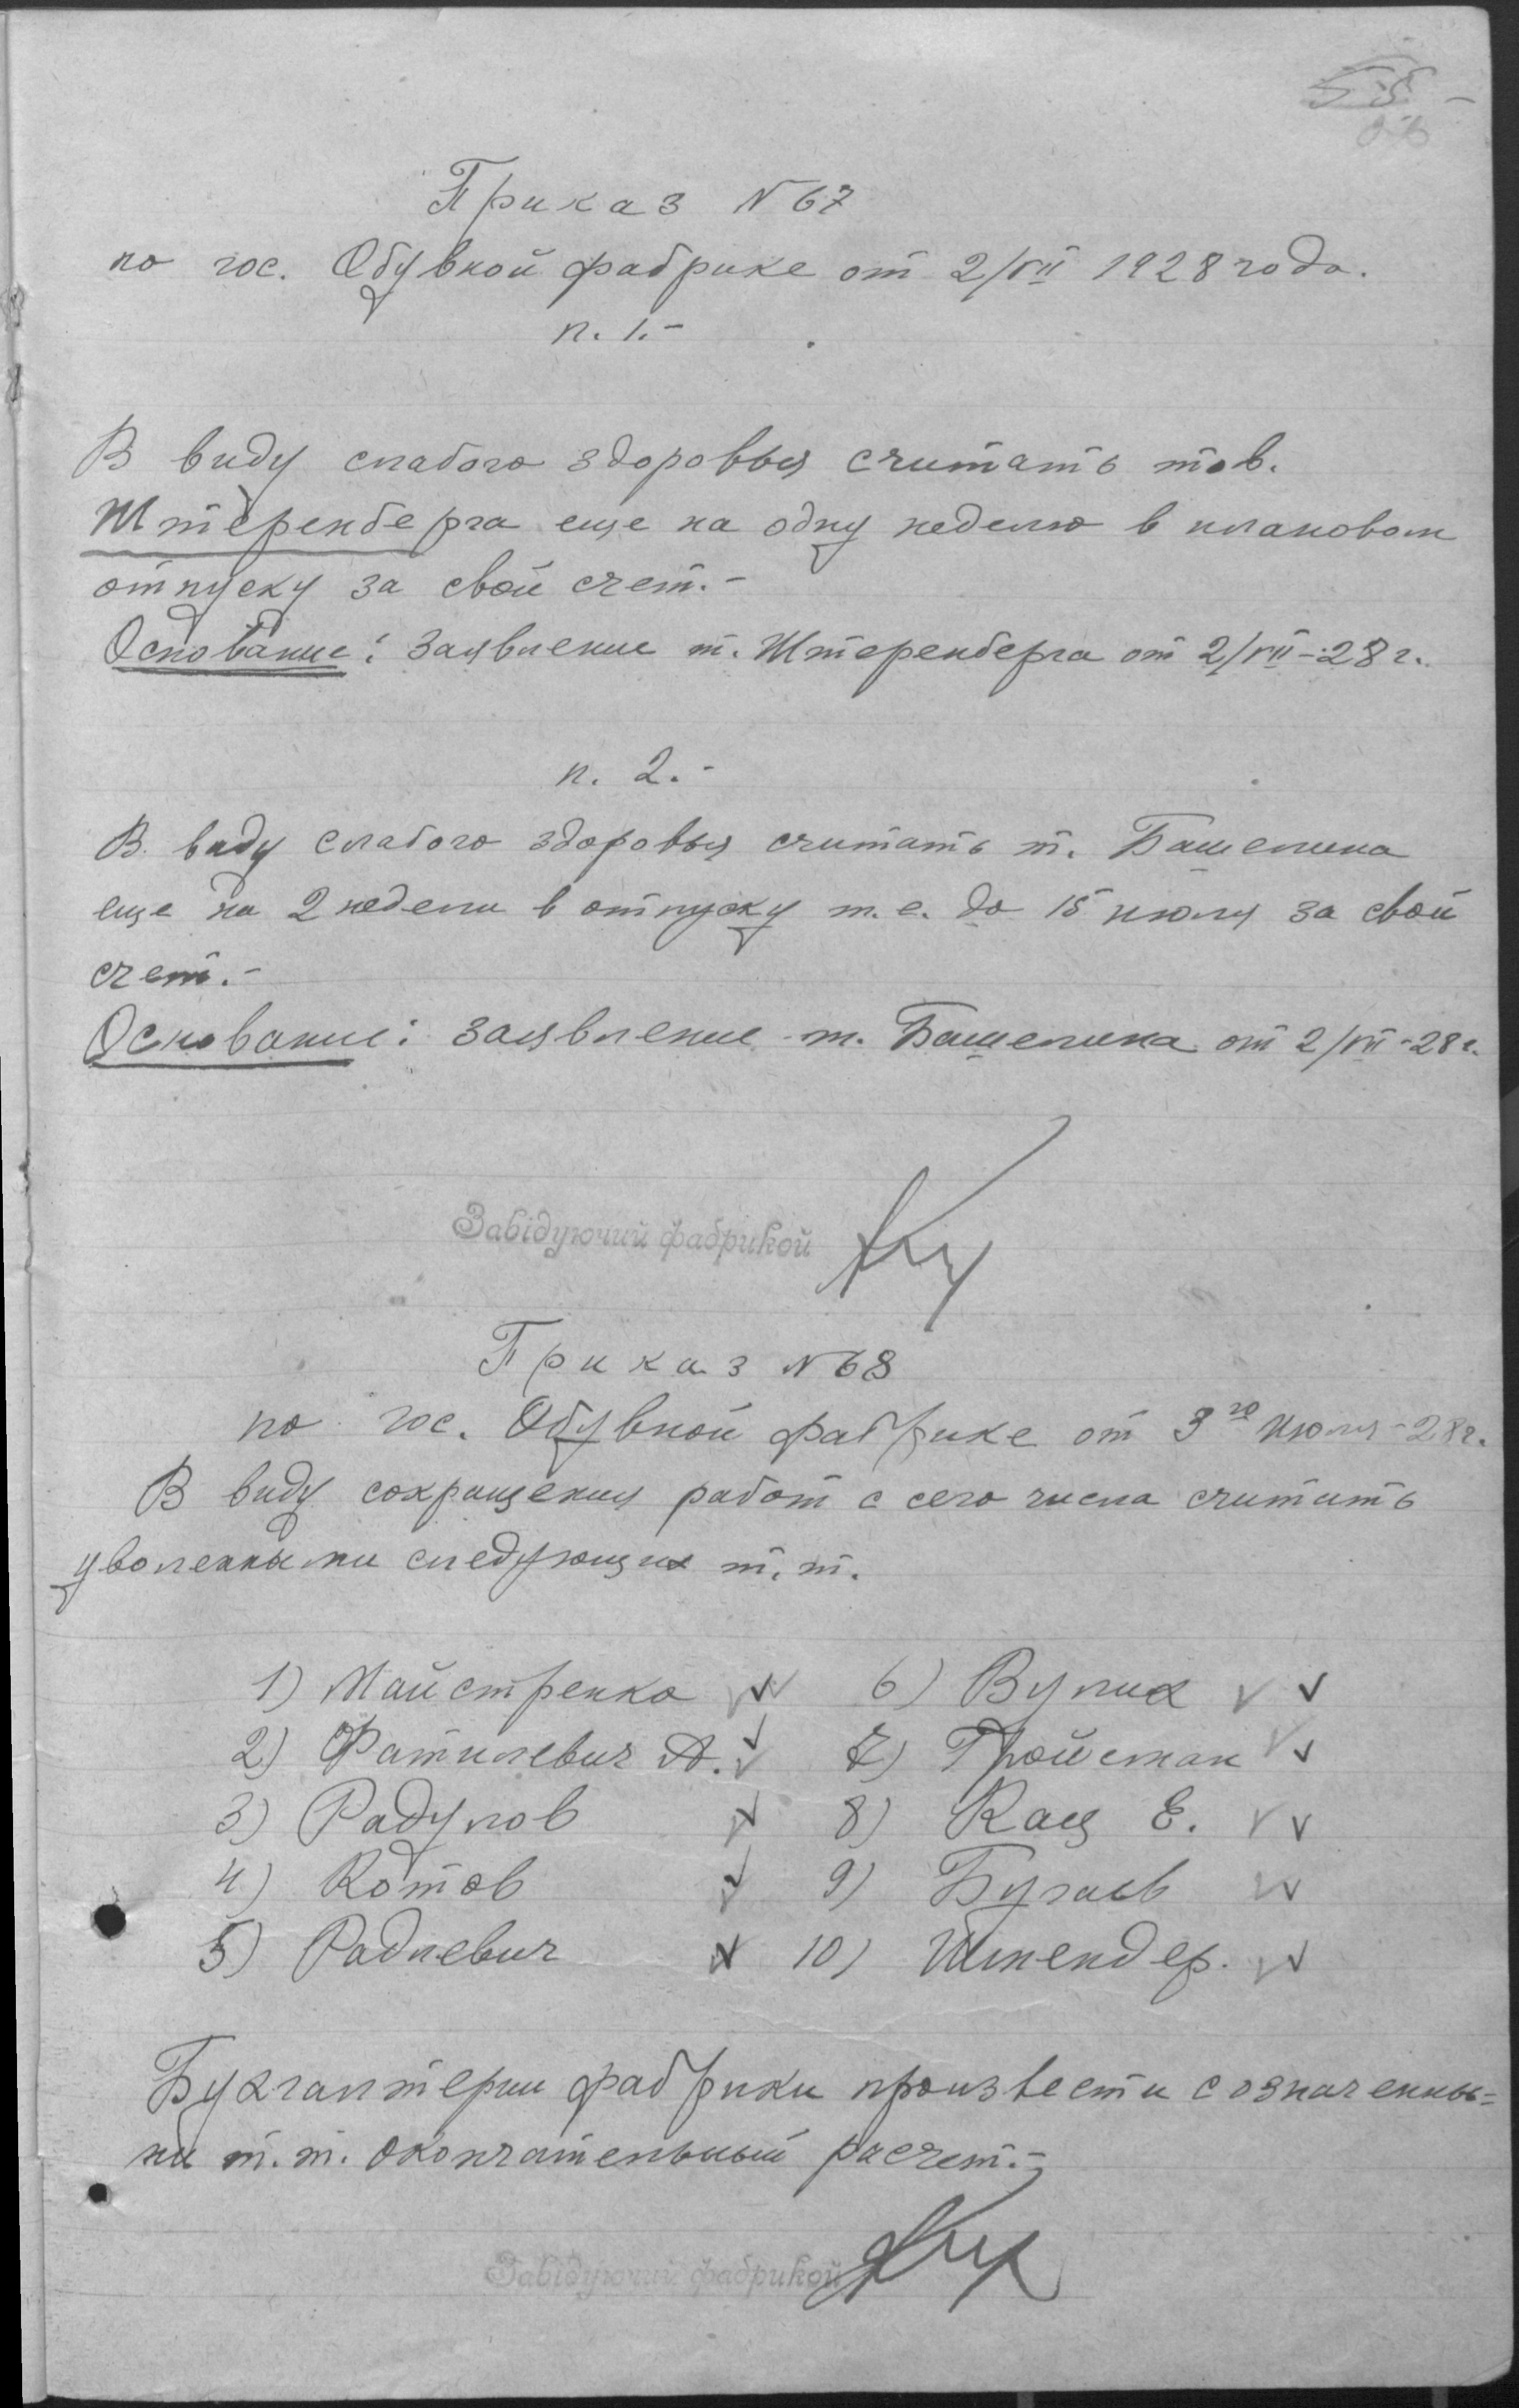 55 -
Приказ N 67
по гос. Обувной фабрике от 2/VII 1928 года.
п. 1.-
В виду слабого здоровья считать тов.
Штеренберга еще на одну неделю в плановом
отпуску за свой счет.-
Основание: Заявление т. Штеренберга от 2/VII-28 г.
п. 2.-
В виду слабого здоровья считать т. Башелина
еще на 2 недели в отпуску т.е. до 15 июля за свой
счет.-
Основание: Заявление т. Башелина от 2/VII-28 г.
Завідуючий фабрикой
Приказ N 68
по гос. Обувной фабрике от 3го июля-28г.
В виду сокращения работ с сего числа считать
уволенными следующих т.т.
1) Майстренко 6) Вулих
2) Фатилевич А. 7) Тройстман
3) Радулов 8) Кац Е.
4) Котов 9) Бугаев
5) Радневич 10) Шпендер.
Бухгалтерии фабрики произвести с означенны=
ми т.т. окончательный расчет.-
Завідуючий фабрикой